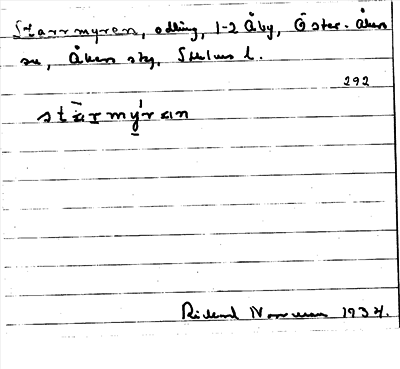 Starrmyren, odling, 1-2 Åby, Öster-Åkers
sn, Åkers skg, Sthlms l.
292
stàrmýran
Rickard 1934.